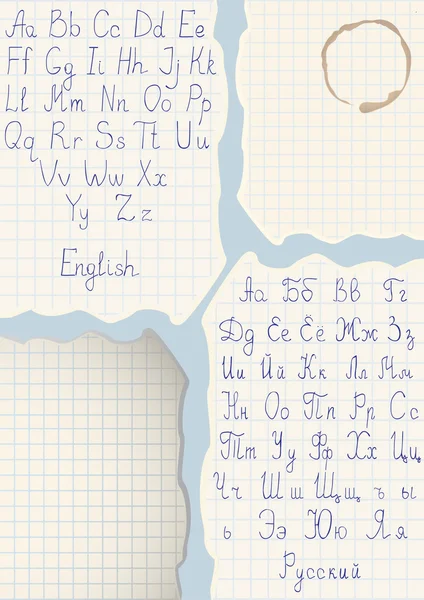 Aa Bb Cc Dd Ee
Ff Gg Ii Hh Jj Kk
Ll Mm Nn Oo Pp
Qq Rr Ss Tt Uu
Vv Ww Xx
Yy Zz
English
Аа Бб Вв Гг
Дд Ее Ёё Жж Зз
Ии Йй Кк Лл Мм
Нн Оо Пп Рр Сс
Тт Уу Фф Хх Цц
Чч Шш Щщ ъ ы
ь Ээ Юю Яя
Русский